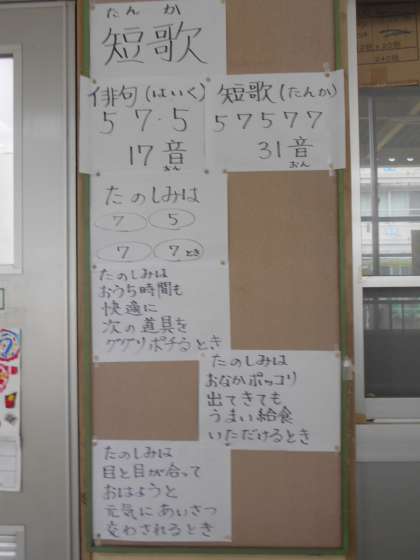 たんか
短歌
俳句(はいく)
5 7・5
17音
おん
短歌(たんか)
5 7 5 7 7
31音
おん
たのしみは
7 5
7 7とき
たのしみは
おうち時間も
快適に
次の道具を
ググリポチるとき
たのしみは
おなかポッコリ
出てきても
うまい給食
いただけるとき
たのしみは
目と目が合って
おはようと
元気にあいさつ
交わされるとき